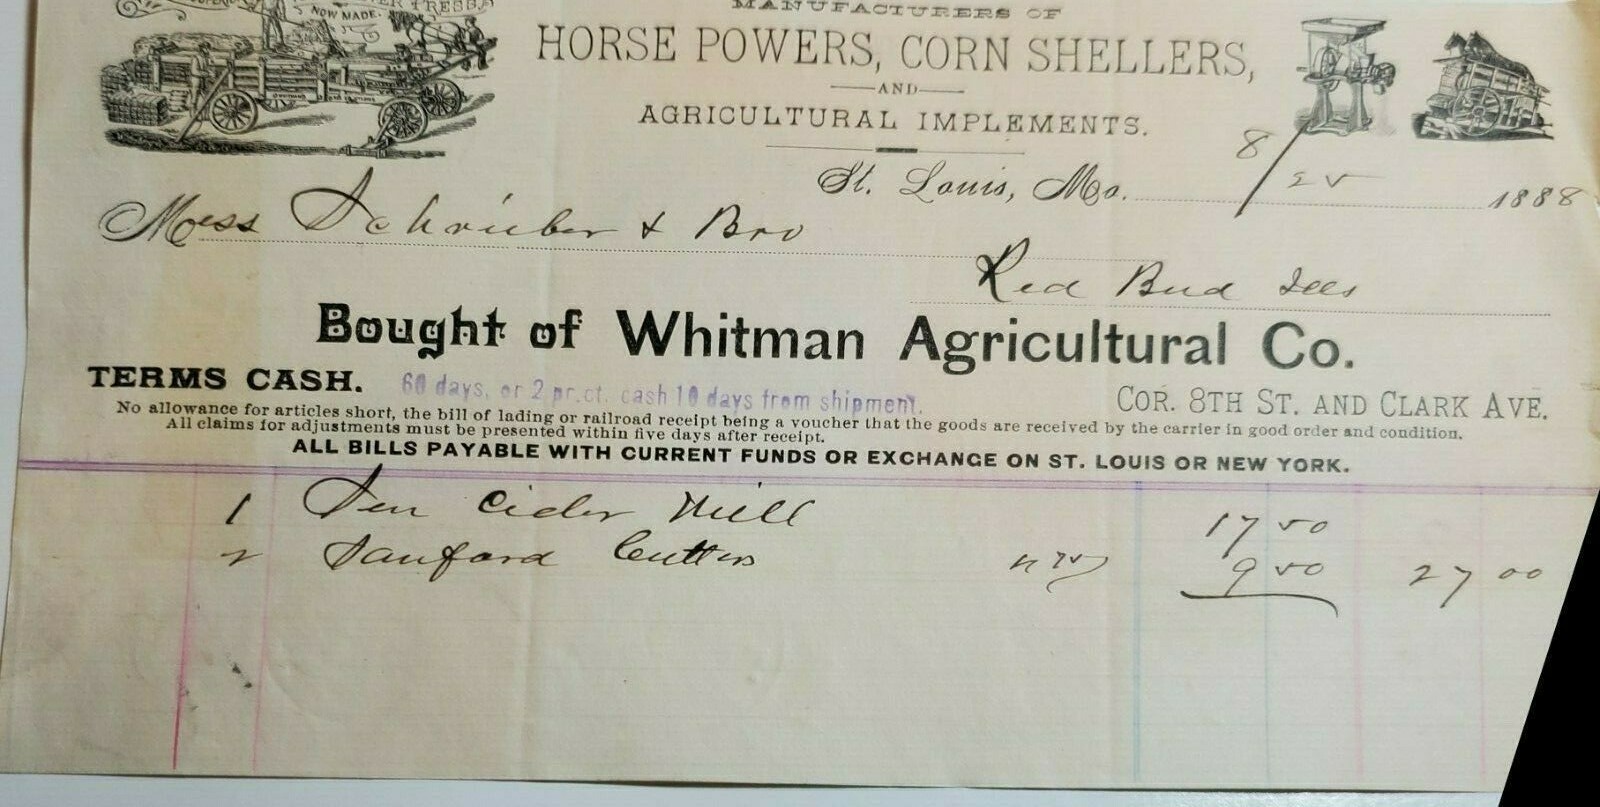 NOW MADE.
MANUFACTURERS OF
HORSE POWERS, CORN SHELLERS,
AND
AGRICULTURAL IMPLEMENTS.
St. Louis, Mo. 8/25 1888
Mess Schrieber & Bro
Red Bud Ills
Bought of Whitman Agricultural Co.
TERMS CASH. 60 days, or 2 pr.ct. cash 10 days from shipment. COR. 8TH ST. AND CLARK AVE.
No allowance for articles short, the bill of lading or railroad receipt being a voucher that the goods are received by the carrier in good order and condition.
All claims for adjustments must be presented within five days after receipt.
ALL BILLS PAYABLE WITH CURRENT FUNDS OR EXCHANGE ON ST. LOUIS OR NEW YORK.
1 Sen Cider Mill 17 50
2 Sanford Cutters 4 75 9 50 27 00